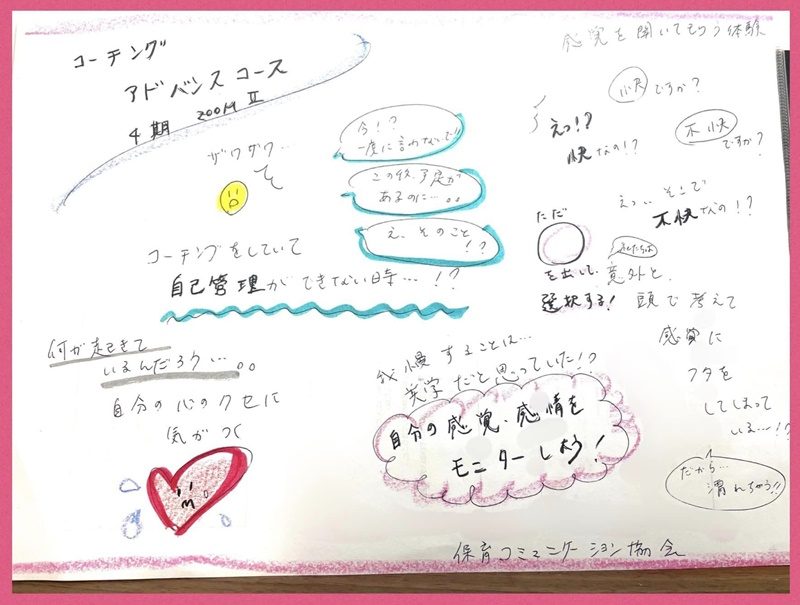 コーチング
アドバンスコース
4期 Ⅱ
ザワザワ…
今!?
一度に言わないで!!
この後、予定が
あるのに…。。
え、そのこと
!?
コーチングをしていて
自己管理ができない時…!?
何が起きて
いるんだろう…。。
自分の心のクセに
気がつく
感覚を聞いてもらう体験
快ですか?
えっ!?
快なの!?
不快
ですか?
えっ、、そこで
不快なの!?
ただ
を出して、
選択する!
わたしたちは
意外と、
頭で考えて
感覚に
フタを
してしまって
いる…!?
だから…
潰れちゃう!!
我慢することは…
美学だと思っていた!?
自分の感覚、感情を
モニターしよう!
保育コミュニケーション協会